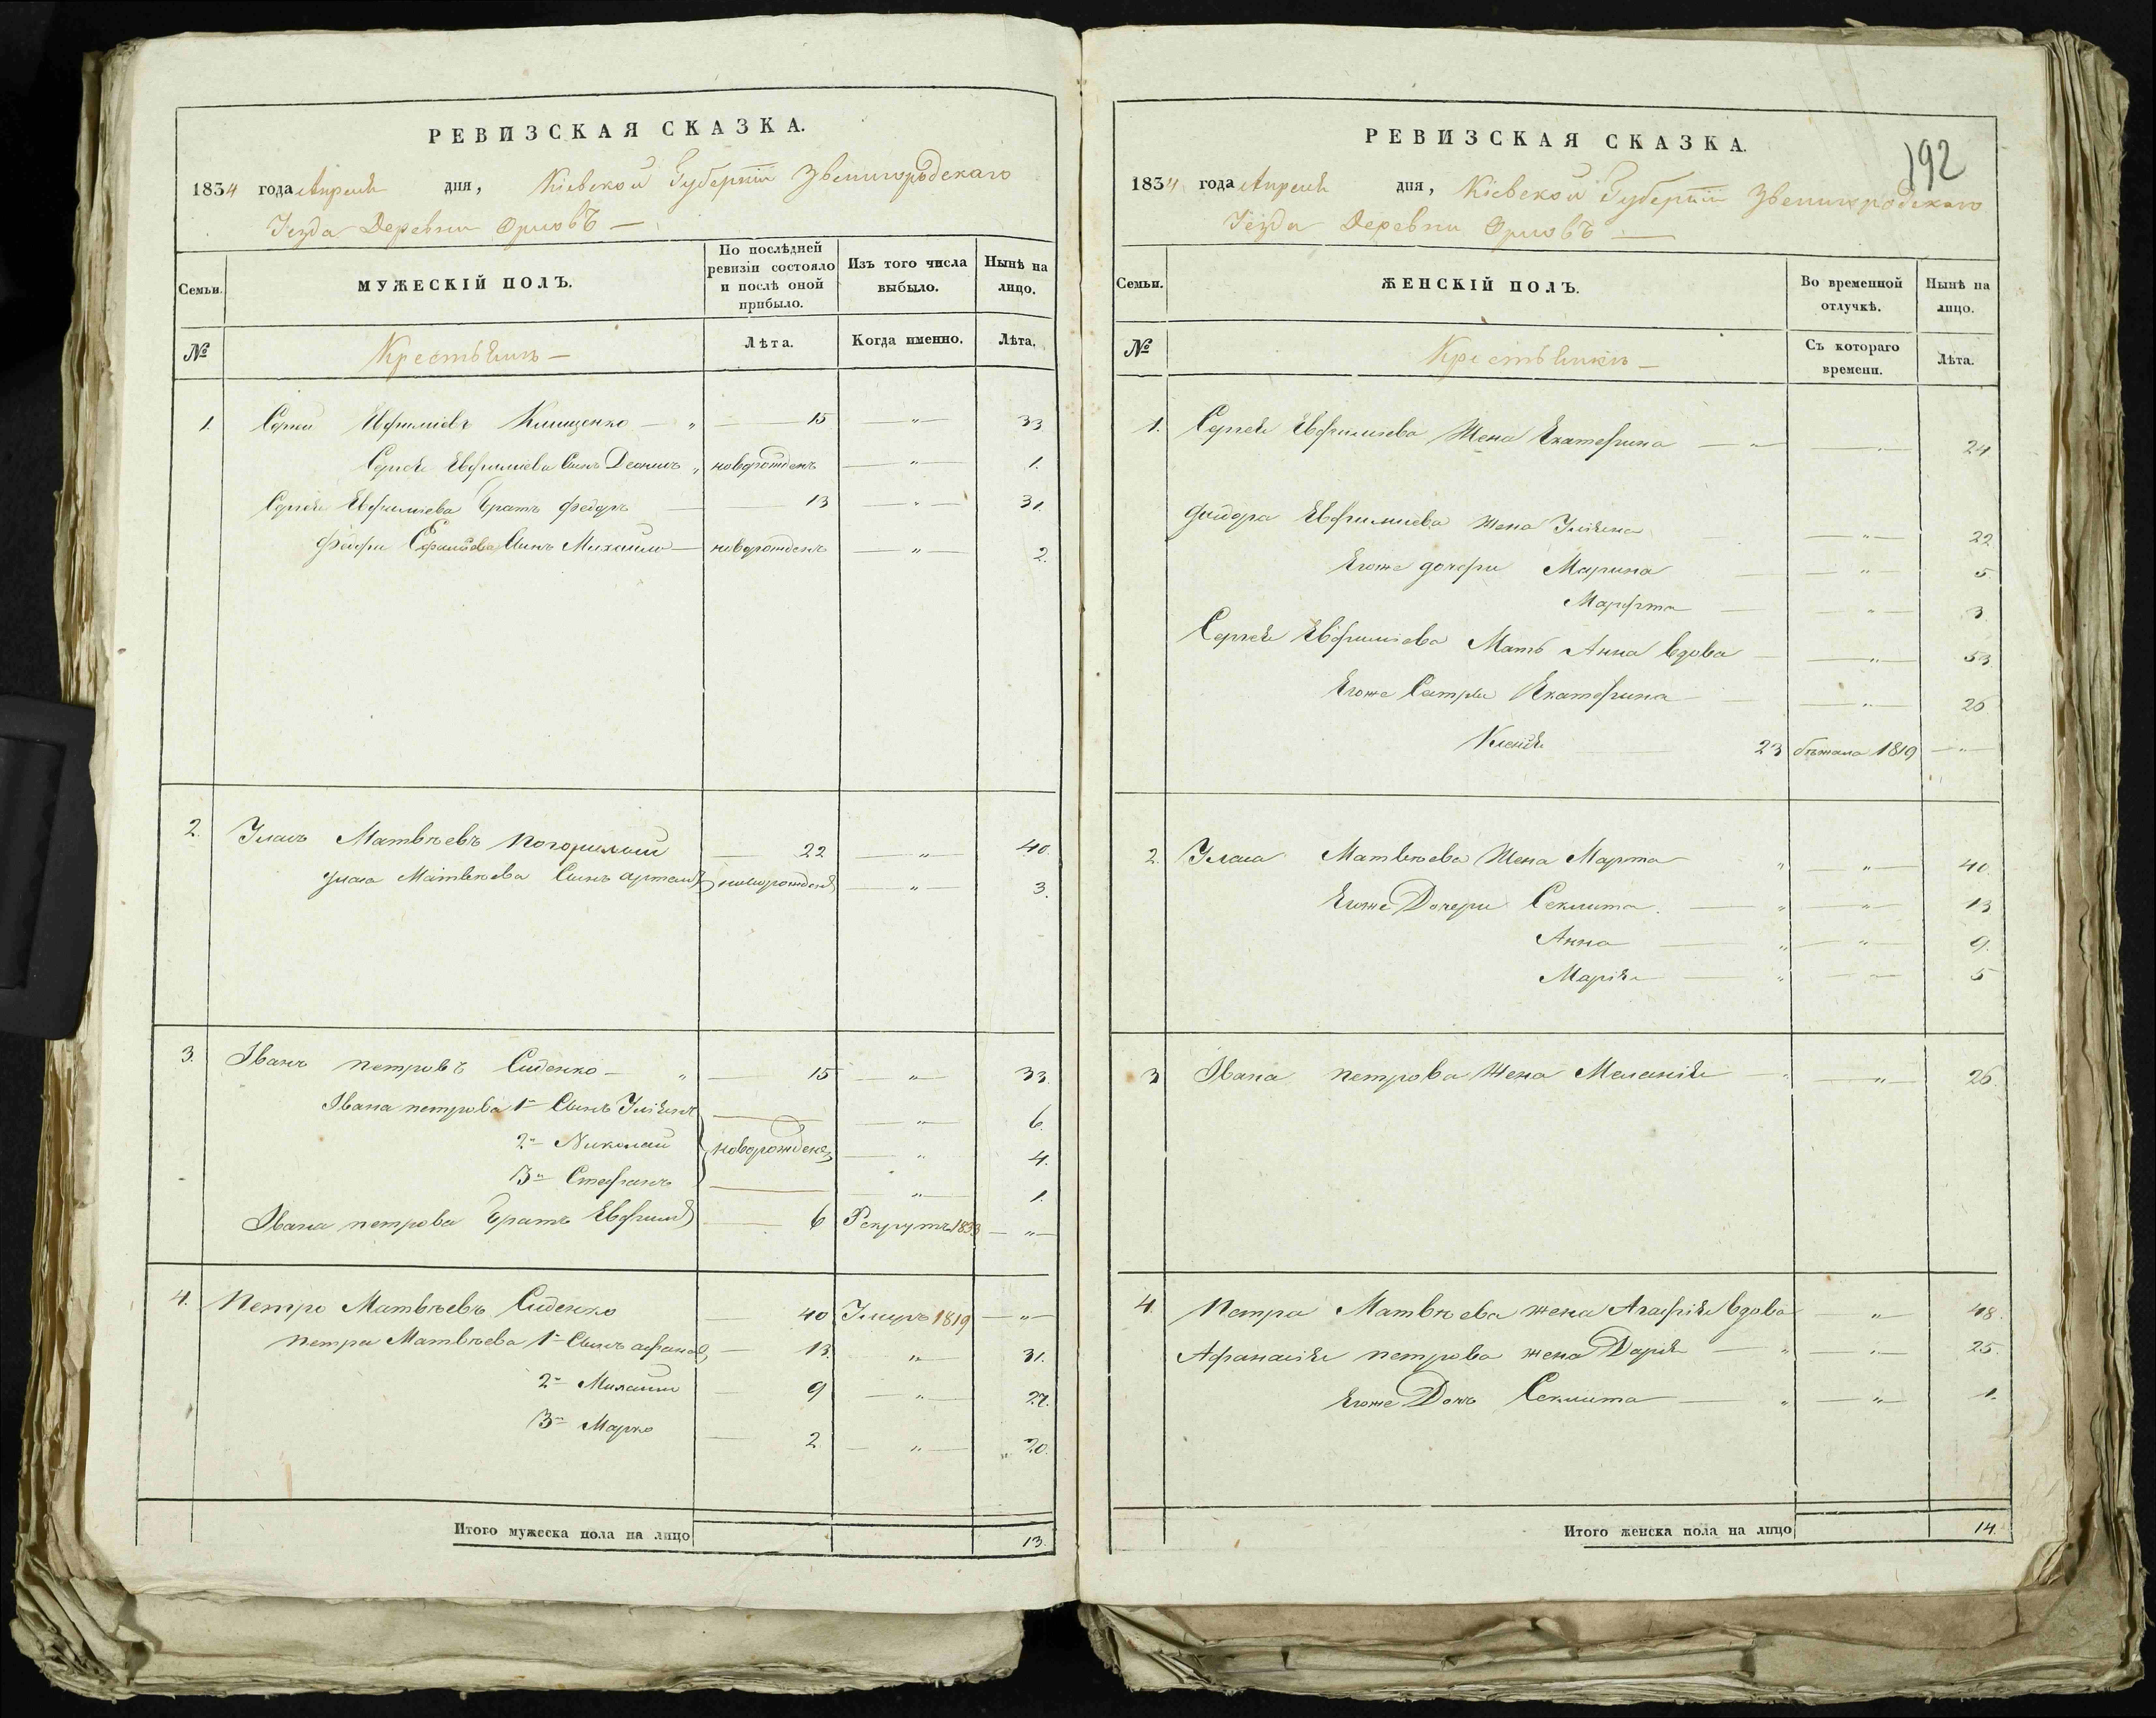 РЕВИЗСКАЯ СКАЗКА.
1834 года Апреля дня, Кіевской Губерніи Звенигородскаго
Уезда Деревни Орловъ —
Семьи.
МУЖЕСКІЙ ПОЛЪ.
По послѣдней ревизіи состояло и послѣ оной прибыло.
Изъ того числа выбыло.
Нынѣ на лицо.
№
Крестьянъ —
Лѣта.
Когда именно.
Лѣта.
1. Сергей Ефимиевъ Клищенко — " — 15 — " — 33
Сергея Евфимиева Сынъ " новорожденъ — " — 1.
Сергея Евфимиева Братъ Федоръ — 13 — " — 31.
Сынъ Михаило — новорожденъ — " — 2.
2. Уласъ Матвѣевъ Погорилый — 22 — " — 40.
Уласа Матвѣева Сынъ новорожденъ — " — 3.
3. Іванъ петровъ Сиденко — " — 15 — " — 33.
Івана петрова 1й Сынъ Уліянъ — " — 6.
2й Николай новорожденъ — " — 4.
3й Стефанъ — " — 1.
Івана петрова Братъ Евфимій — 6 Рекрутъ 1833 — " —
4. Петро Матвѣевъ Сиденко — 40 Умеръ 1819 — " —
петра Матвѣева 1й Сынъ афанас — 13. " 31.
2й Михаило — 9 — " — 27.
3й Марко — 2 — " — 20.
Итого мужеска пола на лицо 13.
192
РЕВИЗСКАЯ СКАЗКА.
1834 года Апреля дня, Кіевской Губерніи Звенигородскаго
Уезда Деревни Орловъ —
Семьи.
ЖЕНСКІЙ ПОЛЪ.
Во временной отлучкѣ.
Нынѣ на лицо.
№
Крестьянкъ —
Съ котораго времени.
Лѣта.
1. Сергея Евфимиева Жена Екатерина — " — 24
Федора Евфимиева жена Уліяна — " — 22
Егоже дочери Марина — " — 5.
Марфта — " — 3
Сергея Евфимиева Мать Анна вдова — " — 53.
Егоже Сестры Екатерина — " — 26
23 бѣжала 1819 — " —
2. Уласа Матвѣева Жена Марта " — " — 40.
Егоже Дочери Секлита. — " — " — 13
Анна — " — " — 9.
Марія — " — " — 5
3 Івана петрова Жена Меланія — " — 26.
4. Петра Матвѣева жена Агафія вдова — " — 48.
Афанасія петрова жена Дарія — " — " — 25.
Егоже Дочь Секлита — " — " — 1.
Итого женска пола на лицо 14.